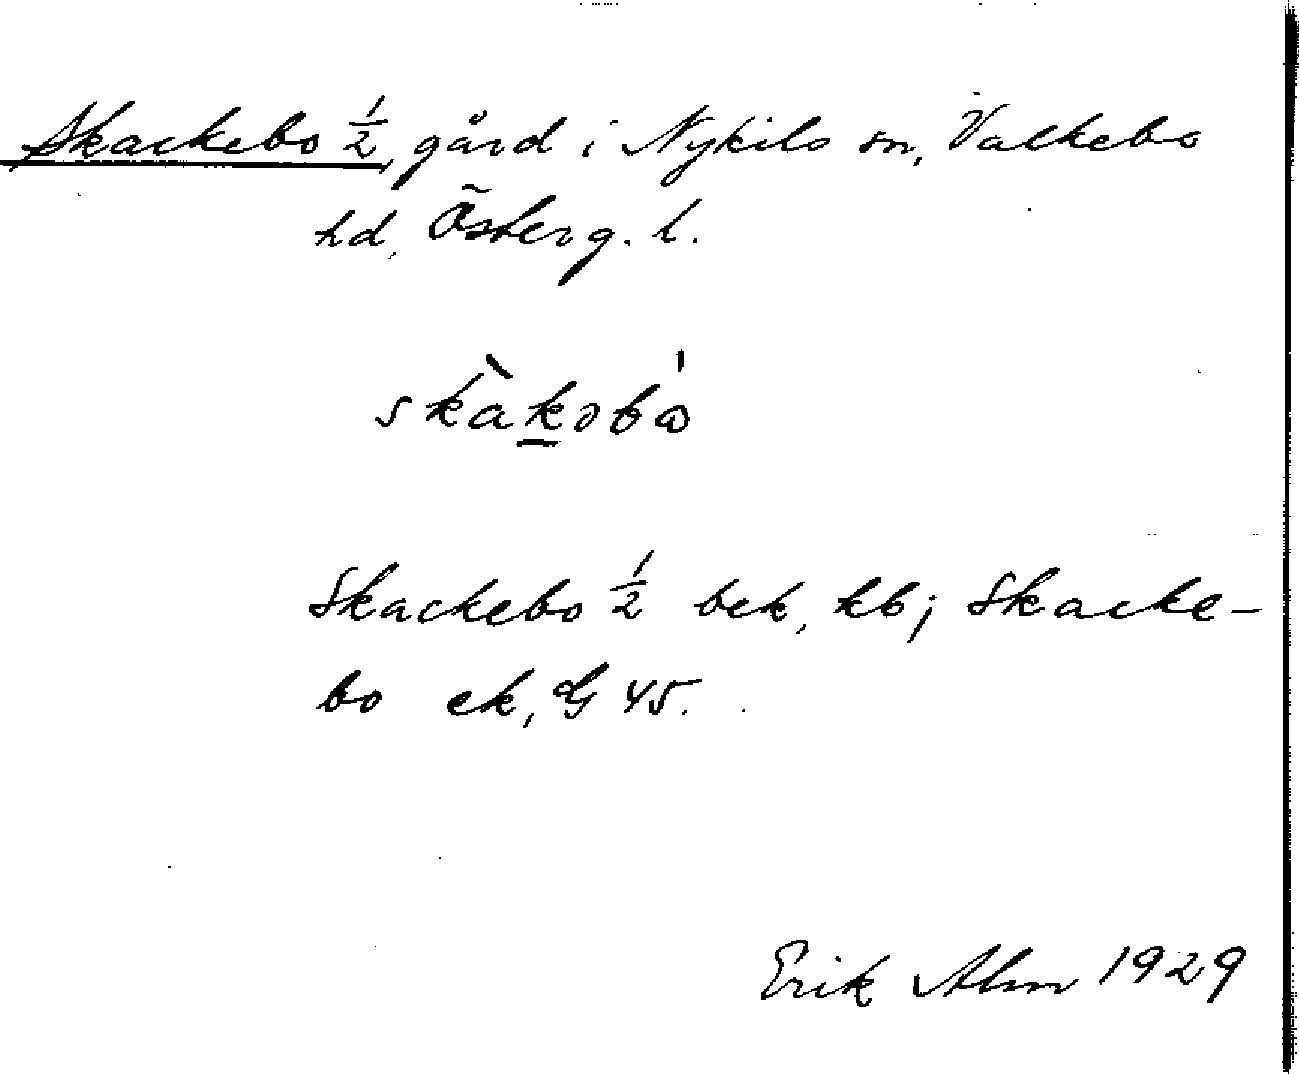 Skackebo ½, gård i Nykils sn, Valkebo
hd, Österg. l.
skàkəbω̍
Skackebo ½ bek, kb; Skacke-
bo ek, G 45.
Erik Alm 1929